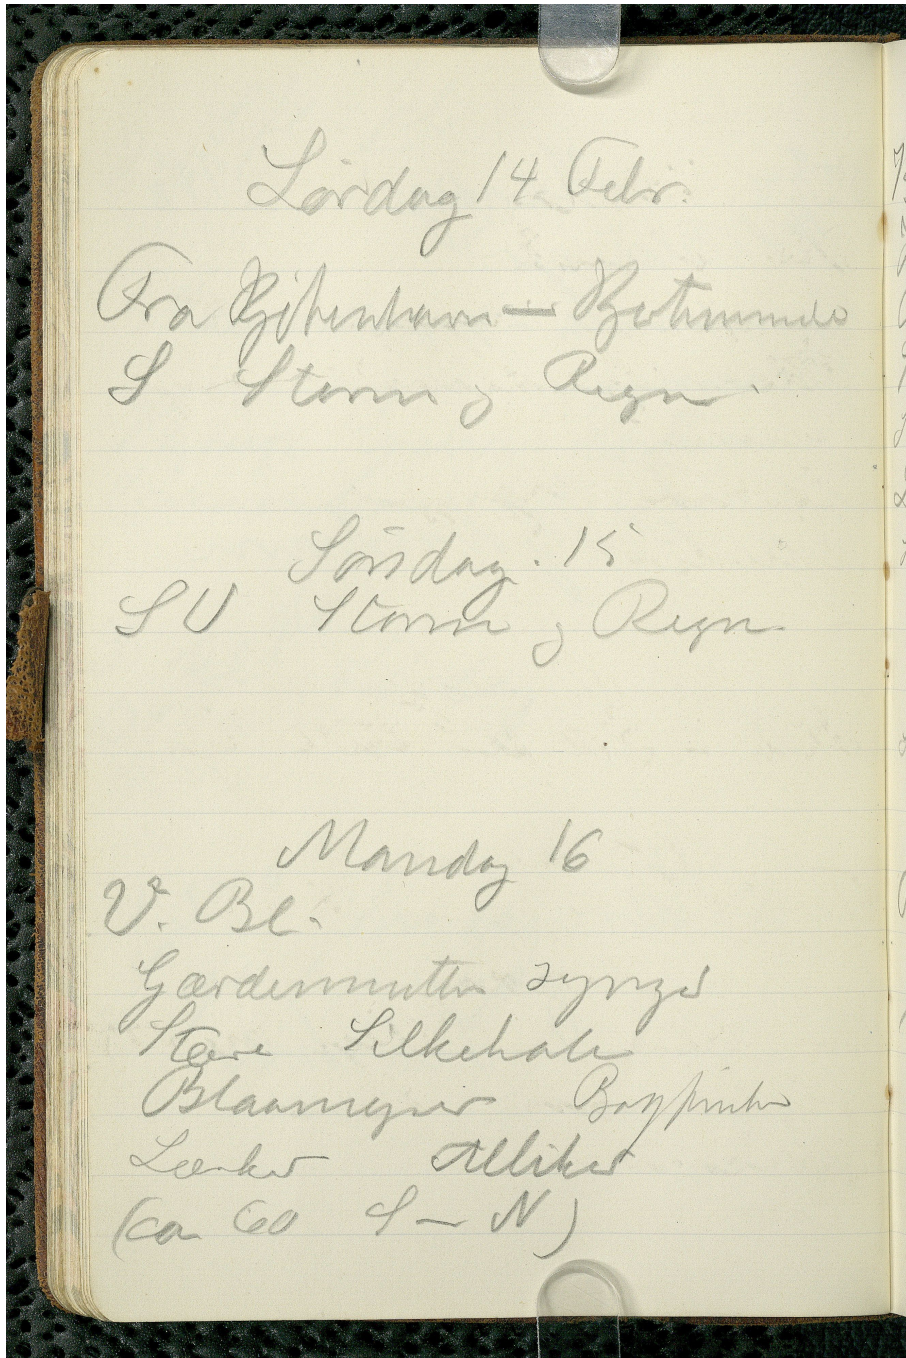 Lørdag 14 Febr.
Fra Kjøbenhavn — Kjerteminde
S Storm og Regn.
Søndag. 15
SV Storm og Regn.
Mandag 16
V. Bl.
Gærdesmutten synger
Stære Silkehale
Blaamejser Bogfinker
Lærker Alliker
(ca 60 S — N)